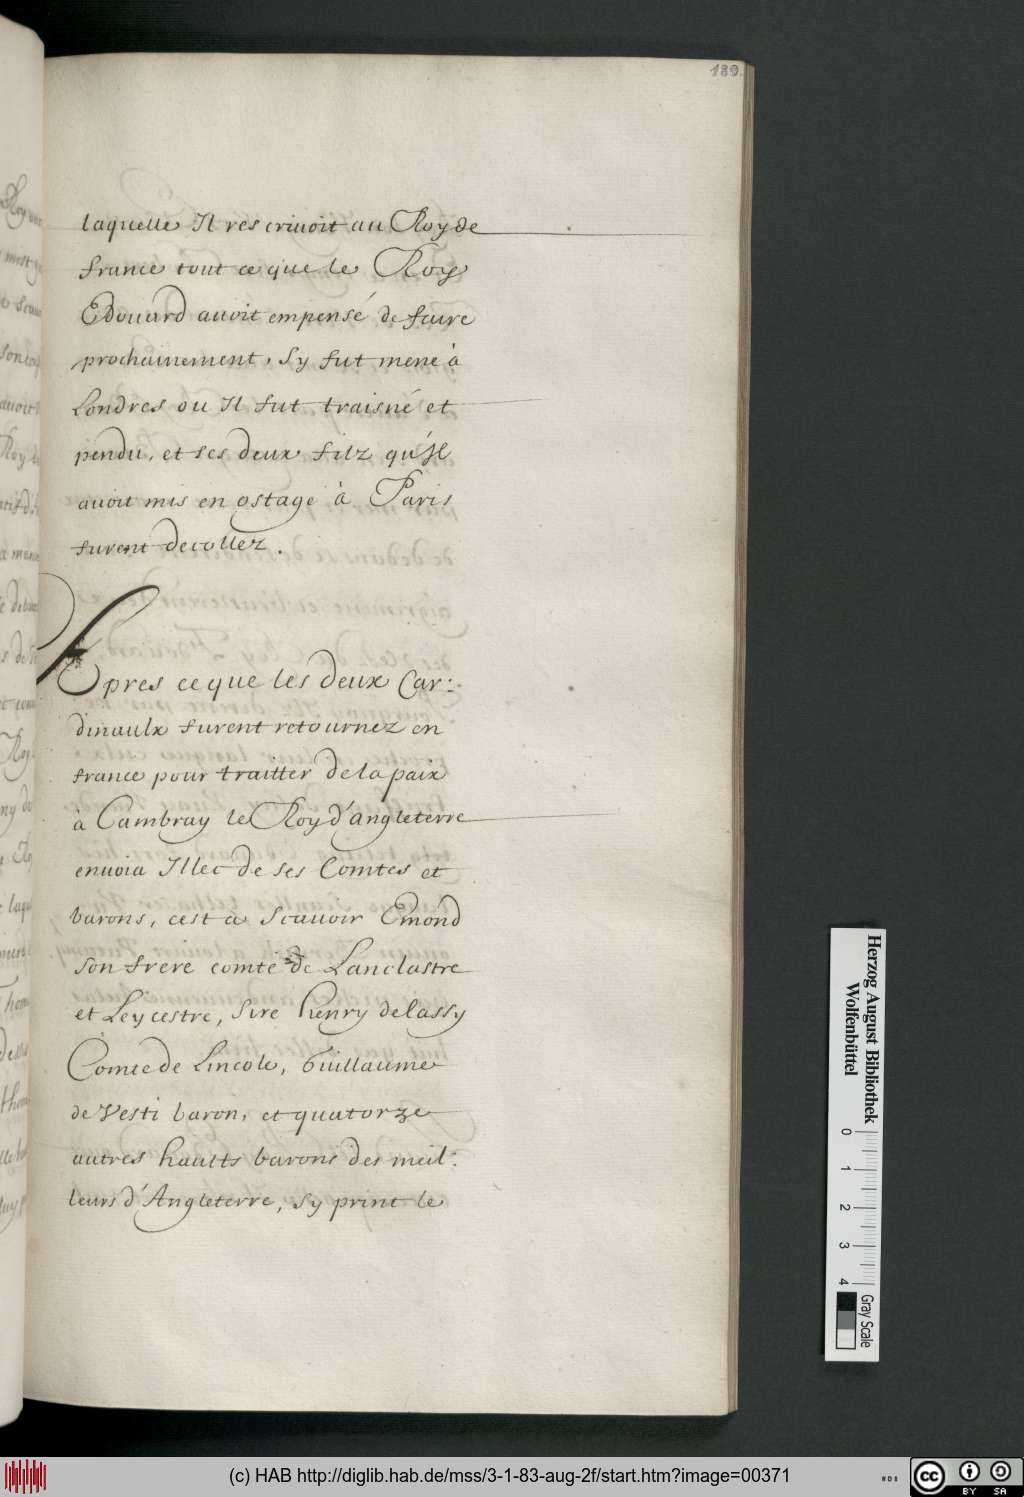 189.
laquelle Il rescriuoit au Roy de
france tout ce que le Roy
Edouard auoit empensé de faire
prochainement, sy fut mene à
Londres ou Il fut traisné et
pendu, et ses deux filz qu'Il
auoit mis en ostage à Paris
furent decollez.
Apres ce que les deux Car-
dinaulx furent retournez en
france pour traitter de la paix
à Cambray le Roy d'angleterre
enuoia Illec de ses Comtes et
barons, cest a scauoir Emond
son frere comte de Lanclastre
et Leycestre, Sire henry de lassy
Comte de Lincole, Guillaume
de Vesti baron, et quatorze
autres haults barons des meil-
leurs d'Angleterre, sy print le
Herzog August Bibliothek
Wolfenbüttel
0 1 2 3 4
Gray Scale
(c) HAB http://diglib.hab.de/mss/3-1-83-aug-2f/start.htm?image=00371
cc BY SA